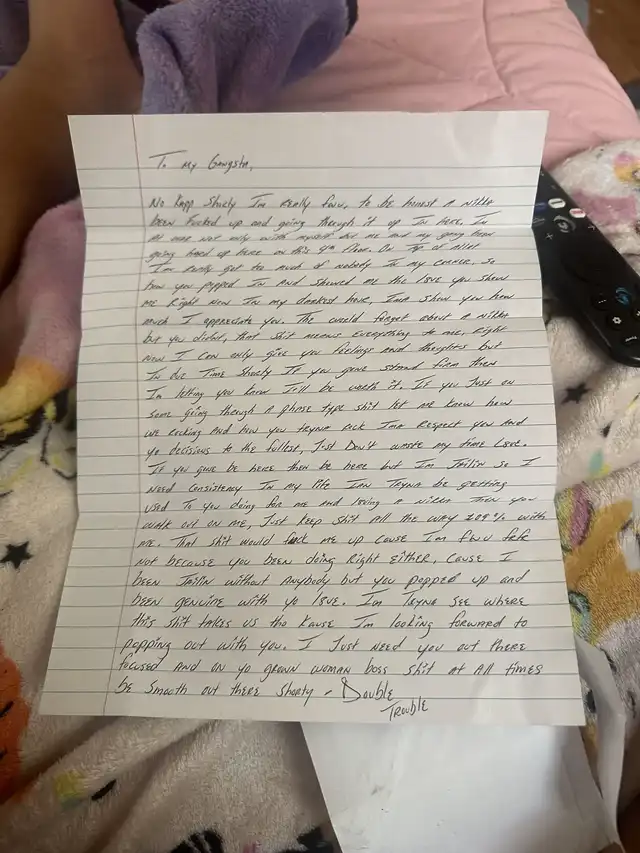 To My Gangsta,
No Kapp Shorty I'm Really fww, to be honest A Nikka
BEEN Fucked up and going through it up IN here. I'm
At war not only with myself but me and my gang been
going hard up here on this 9th floor. On Top of All it
I'm Really got too much of nobody In my corner, so
how you popped IN And Showed me the love you show
me Right Now In my darkest hour, Ima show you how
much I appreciate you. The world forgot about A Nikka
but you didn't, that shit means everything to me, Right
Now I can only give you feelings and thoughts but
In due Time Shorty If you gone stand firm then
Im letting you know Itll be worth it. If you Just on
some going through A phase type shit let me know how
we rocking And how you tryna kick Ima Respect you And
yo decisions to the fullest, Just Don't waste my time Love.
If you gone be here then be here but I'm Jailin so I
need Consistency In my life Ian Tryna be getting
used To you doing for me and loving A Nikka Then you
walk out on me, Just keep shit All the way 109% with
me. That shit would fuck me up cause I'm
Not because you been doing Right either, Cause I
been Jailin without Anybody but you popped up and
been genuine with yo love. I'm Tryna see where
this shit takes us tho Kause I'm looking forward to
popping out with you. I Just need you out there
focused And on yo grown woman boss shit at All times
be Smooth out there Shorty - Double
Trouble